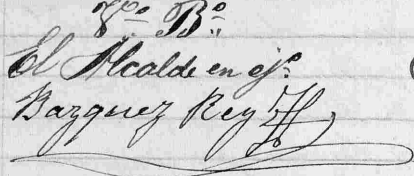 Vº Bº
El Alcalde en ejº
Bazquez Rey